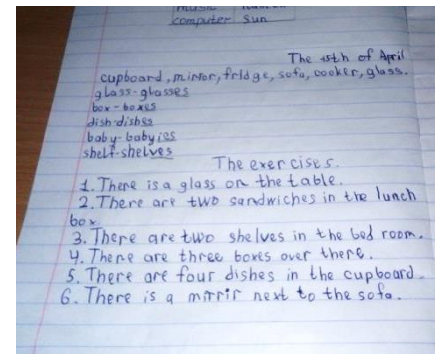 music
computer sun
The 15th of April
cupboard, mirror, fridge, sofa, cooker, glass.
glass-glasses
box-boxes
dish-dishes
baby-babyies
shelf-shelves
The exercises.
1. There is a glass on the table.
2. There are two sandwiches in the lunch
box.
3. There are two shelves in the bed room.
4. There are three boxes over there.
5. There are four dishes in the cupboard.
6. There is a mirrir next to the sofa.